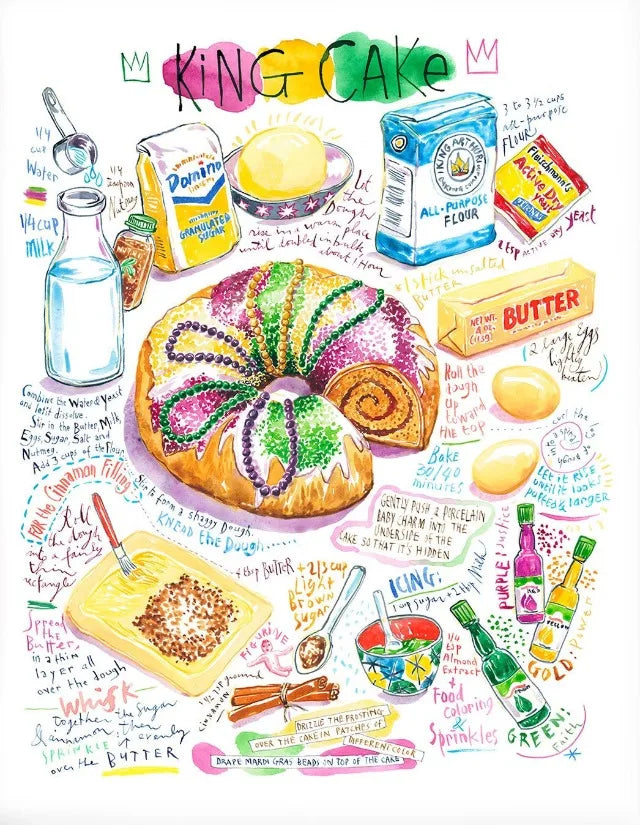 KiNG CAKe
1/4
cup
Water
1/4 CUP
MILK
1/4
teaspoon
Nutmeg
Domino
GRANULATED
SUGAR
Let
the
Dough
rise in a warm place
until doubled in bulk
about 1 Hour
KING ARTHUR
ALL-PURPOSE
FLOUR
3 to 3 1/2 cups
all-purpose
FLOUR
Fleischmann's
Active Dry
yeast
ACTIVE DRY yeast
1 stick unsalted
BUTTER
NET WT.
4 OZ.
(113g)
BUTTER
2 large Eggs
lightly
beaten
Roll the
tough
up
toward
the top
Combine the Water & Yeast
and let it dissolve.
Stir in the Butter, Milk,
Eggs, Sugar, Salt and
Nutmeg.
Add 3 cups of the Flour
Stir to form a shaggy Dough.
KNEAD the Dough......
Bake
30/40
minutes
LET IT RISE
UNTIL it looks
puffed & larger
FOR the Cinnamon Filling
Roll
the dough
into a fairly
thin
rectangle
GENTLY PUSH A PORCELAIN
BABY CHARM INTO THE
UNDERSIDE OF THE
CAKE SO THAT IT'S HIDDEN
BUTTER + 2/3 cup
Light
Brown
Sugar
FIGURINE
ICING:
Milk
1/4
tsp
Almond
Extract
+
Food
Coloring
&
Sprinkles
PURPLE: justice
GOLD: Power
GREEN: Faith
Spread
the
Butter
in a thin
layer all
over the dough
Whisk
together the sugar
& cinnamon then
SPRINKLE it evenly
over the BUTTER
1 1/2 tsp ground
cinnamon
DRIZZLE THE FROSTING
OVER THE CAKE IN PATCHES OF
DIFFERENT COLOR
DRAPE MARDI GRAS BEADS ON TOP OF THE CAKE